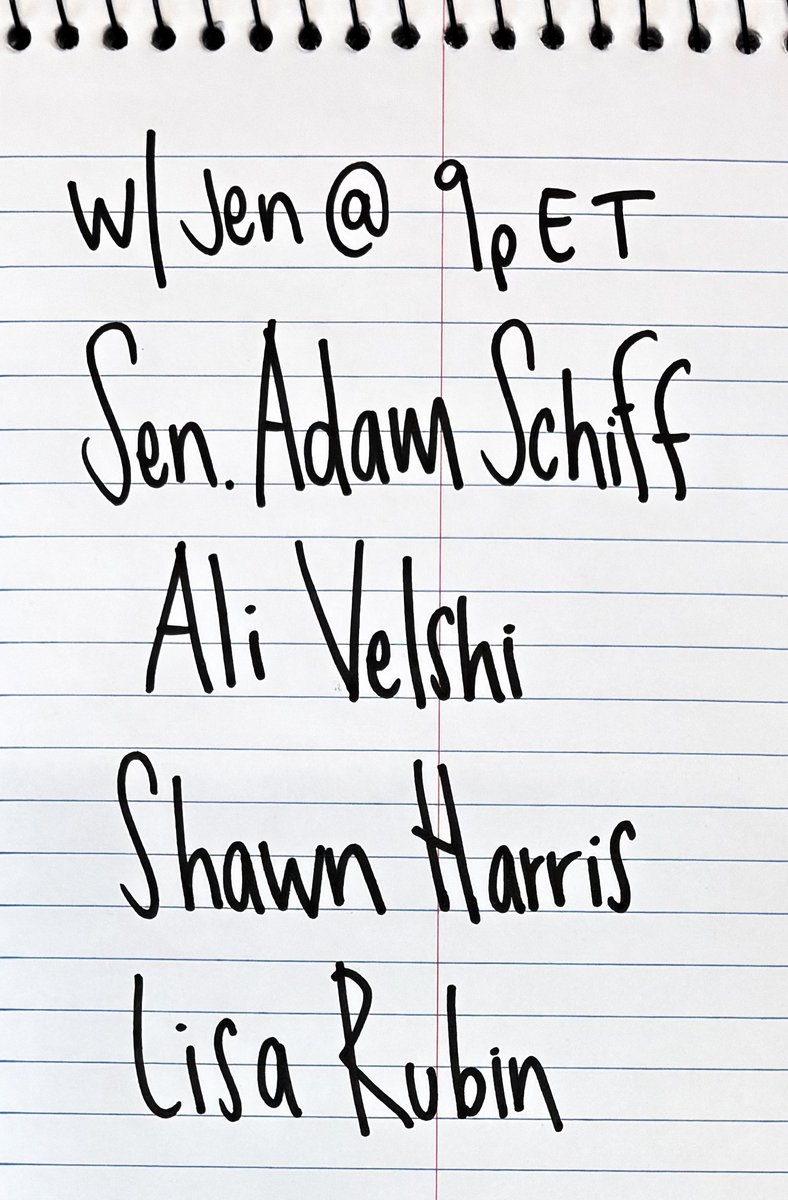 w/ Jen @ 9p ET
Sen. Adam Schiff
Ali Velshi
Shawn Harris
Lisa Rubin